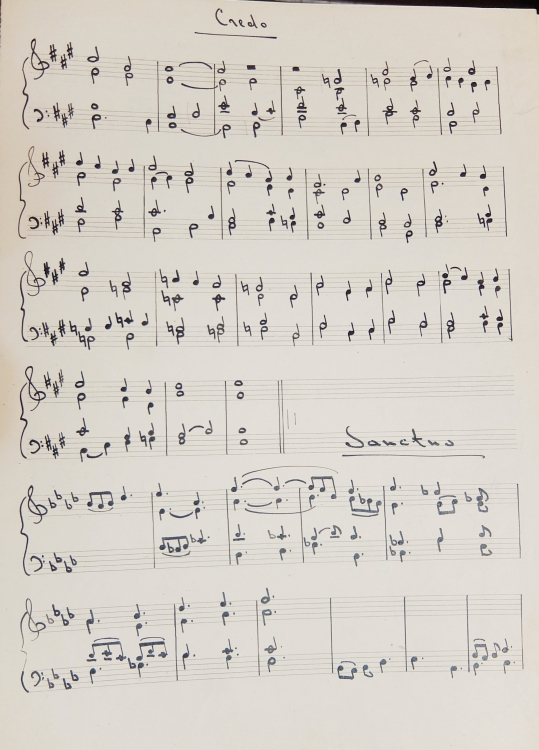 Credo
Sanctus